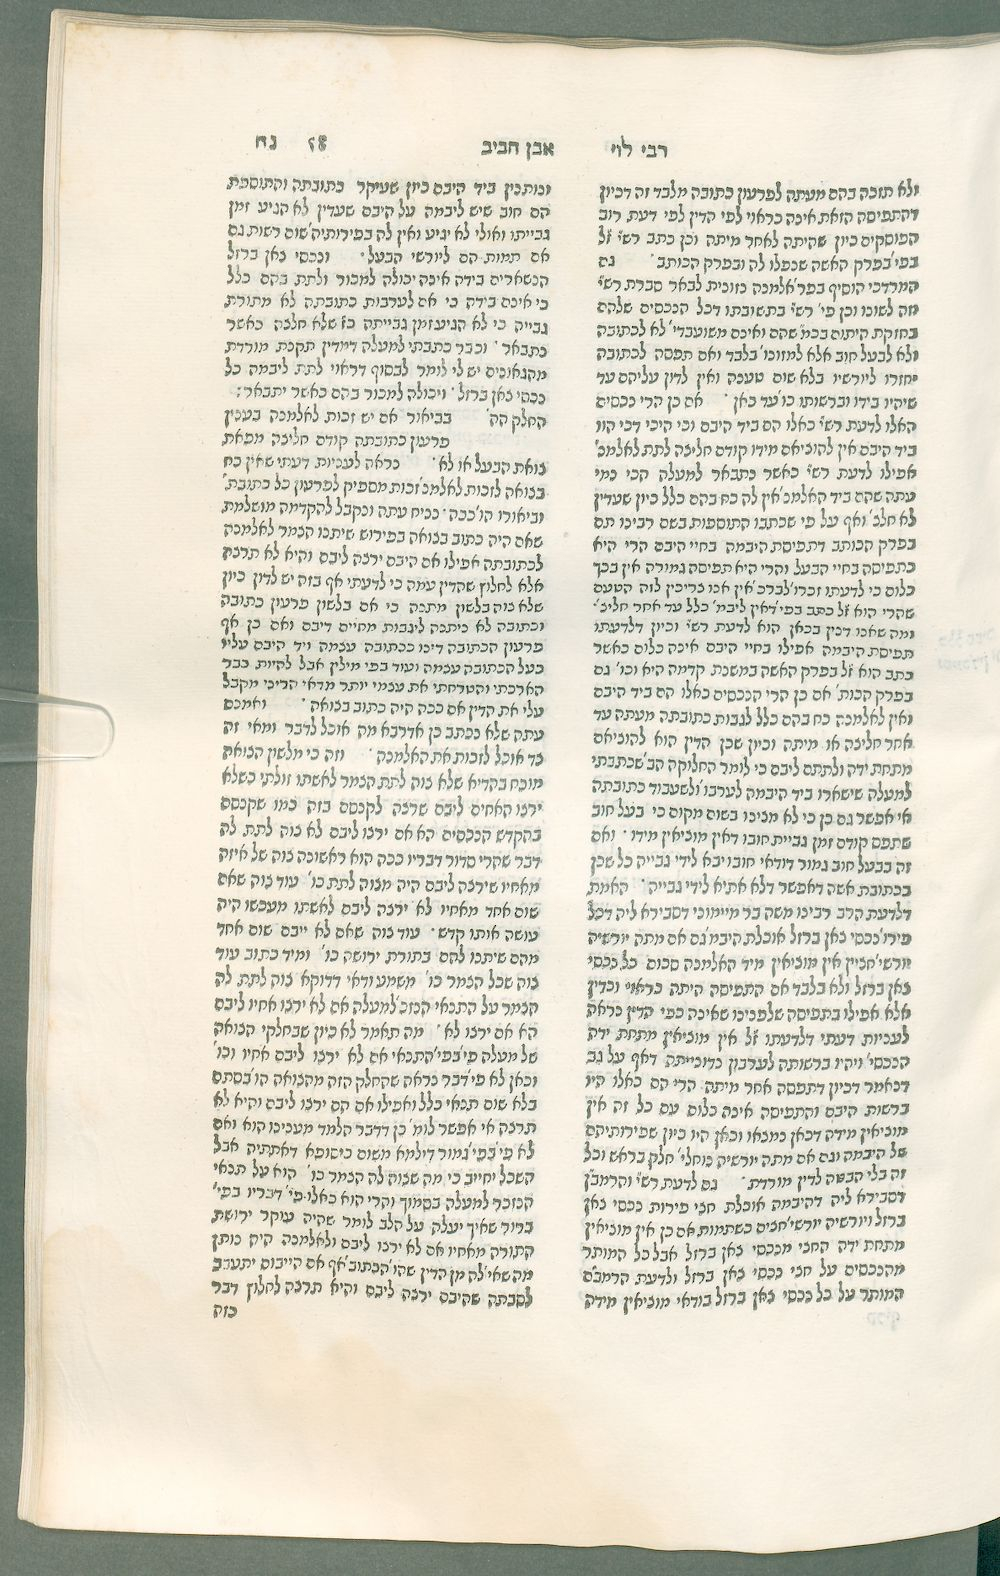 רבי לוי אבן חביב נח
ולא תזכה בהם מעתה לפרעון כתובה מלבד זה דכיון
דהתפיסה הזאת אינה כראוי לפי הדין לפי דעת רוב
הפוסקים כיון שהיתה לאחר מיתה וכן כתב רש״י ז״ל
בפי׳ בפרק האשה שנפלו לה ובפרק הכותב ׳ גם
המרדכי הוסיף בפר׳ אלמנה נזונית לבאר סברת רש״י
וזה לשונו וכן פי׳ רש״י בתשובתו דכל הנכסים שלהם
בחזקת היתום בכמ׳ שהם ואינם משועבדי׳ לא לכתובה
ולא לבעל חוב אלא למזונו׳ בלבד ואם תפסה לכתובה
יחזרו ליורשיו בלא שום טענה ואין לדין עליהם עד
שיהיו בידו וברשותו כו׳ עד כאן ׳ אם כן הרי נכסים
האלו לדעת רש״י כאלו הם ביד היבם וכי היכי דכי הוו
ביד היבם אין להוציאם מידו קודם חליצה לתת לאלמנ׳
אפילו לדעת רש״י כאשר נתבאר למעלה הכי נמי
עתה שהם ביד האלמנ׳ אין לה כח בהם כלל כיון שעדין
לא חלצ׳ ואף על פי שכתבו התוספות בשם רבינו תם
בפרק הכותב דתפיסת היבמה בחיי היבם הרי היא
כתפיסה בחיי הבעל והרי היא תפיסה גמורה אין בכך
כלום כי לדעתו זכרו לברכ׳ אין אנו צריכין לזה הטעם
שהרי הוא ז״ל כתב בפי׳ דאין ליבמ׳ כלל עד אחר חליצ׳
ומה שאנו דנין בכאן הוא לדעת רש״י וכיון דלדעתו
תפיסת היבמה אפילו בחיי היבם אינה כלום כאשר
כתב הוא ז״ל בפרק האשה במשנת קדמה היא וכו׳ גם
בפרק הכות׳ אם כן הרי הנכסים כאלו הם ביד היבם
ואין לאלמנה כח בהם כלל לגבות כתובתה מעתה עד
אחר חליצה או מיתה וכיון שכן הדין הוא להוציאם
מתחת ידה ולתתם ליבם כי לומר החלוקה הב׳ שכתבתי
למעלה שישארו ביד היבמה לערבו׳ ולשעבוד כתובתה
אי אפשר גם כן כי לא מצינו בשום מקום כי בעל חוב
שתפס קודם זמן גביית חובו דאין מוציאין מידו ׳ ואם
זה בבעל חוב גמור דודאי חובו יבא לידי גבייה כל שכן
בכתובת אשה דאפשר דלא אתיא לידי גבייה ׳ האמת
דלדעת הרב רבינו משה בר מיימוני דסבירא ליה דכל
פירו׳ נכסי צאן ברזל אוכלת היבמ׳ גם אם מתה יורשיה
יורשי׳ חציין אין מוציאין מיד האלמנה סכום כל נכסי
צאן ברזל ולא בלבד אם התפיסה היתה כראוי וכדין
אלא אפילו בתפיסה שלפנינו שאינה כפי הדין כראה
לעניות דעתי דלדעתו ז״ל אין מוציאין מתחת ידה
הנכסי׳ ויהיו ברשותה לערבון כדוכייתה דאף על גב
דנאמר דכיון דתפסה אחר מיתה הרי הם כאלו היו
ברשות היבם והתפיסה אינה כלום עם כל זה אין
מוציאין מידה דכאן נמצאו וכאן היו כיון שפירותיהם
של היבמה וגם אם מתה יורשיה נוחלי׳ חלק בראש וכל
זה בלי הבטה לדין מורדת ׳ גם לדעת רש״י והרמב״ן
דסבירא ליה דהיבמה אוכלת חצי פירות נכסי צאן
ברזל ויורשיה יורשי׳ חציים כשתמות אם כן אין מוציאין
מתחת ידה החצי מנכסי צאן ברזל אבל כל המותר
מהנכסים על חצי נכסי צאן ברזל ולדעת הרמב״ם
המותר על כל נכסי צאן ברזל בודאי מוציאין מידה
זכות כין ביד היבם כיון שעיקר כתובתה והתוספת
הם חוב שיש ליבמה על היבם שעדין לא הגיע זמן
גבייתו ואולי לא יגיע ואין לה בפירותיה׳ שום רשות גם
אם תמות הם ליורשי הבעל ׳ ונכסי צאן ברזל
הנשארים בידה אינה יכולה למכור ולתת בהם כלל
כי אינם בידה כי אם לערבות כתובתה לא מתורת
גבייה כי לא הגיע זמן גבייתה כ״ז שלא חלצה כאשר
נתבאר ׳ וכבר כתבתי למעלה דמדין תקנת מורדת
מהגאונים יש לי לומר לבסוף דראוי לתת ליבמה כל
נכסי צאן ברזל ׳ ויכולה למכור בהם כאשר יתבאר :
החלק הה׳ בביאור אם יש זכות לאלמנה בענין
פרעון כתובתה קודם חליצה מפאת
צואת הבעל או לא ׳ נראה לעניות דעתי שאין כח
בצואה לזכות לאלמנ׳ זכות מספיק לפרעון כל כתובת׳
וביאורו הו׳ ככה ׳ נניח עתה ונקבל להקדמה מושלמת
שאם היה כתוב בצואה בפירוש שיתנו הנזכר לאלמנה
לכתובתה אפילו אם היבם ירצה ליבם והיא לא תרצה
אלא לחלוץ שהדין עמה כי לדעתי אף בזה יש לדון כיון
שלא צוה בלשון מתנה כי אם בלשון פרעון כתובה
וכתובה לא ניתנה לגבות מחיים דיבם ואם כן אף
פרעון הכתובה דינו ככתובה עצמה ויד היבם עליו
כעל הכתובה עצמה ועוד בפי מילין אבל להיות כבר
הארכתי והטרחתי את עצמי יותר מדאי הריני מקבל
עלי את הדין אם ככה היה כתוב בצואה ׳ ואמנם
עתה שלא נכתב כן אדרבא מה אוכל לדבר ומאי זה
צד אוכל לזכות את האלמנה ׳ וזה כי מלשון הצואה
מוכח בהדיא שלא צוה לתת הנזכר לאשתו זולתי כשלא
ירצו האחים ליבם שרצה לקנסם בזה כמו שקנסם
בהקדש הנכסים הא אם ירצו ליבם לא צוה לתת לה
דבר שהרי סדור דבריו ככה הוא ראשונה צוה של איזה
מאחיו שירצה ליבם היה מצוה לתת כו׳ עוד צוה שאם
שום אחד מאחיו לא ירצה ליבם לאשתו מעכשו היה
עושה אותו קדש ׳ עוד צוה שאם לא ייבם שום אחד
מהם שיתנו להם בתורת ירושה כו׳ ומיד כתוב עוד
צוה שכל הנזכר כו׳ משמע ודאי דדוקא צוה לתת לה
הנזכר על התנאי הנזכ׳ למעלה אם לא ירצו אחיו ליבם
הא אם ירצו לא ׳ מה תאמר לא כיון שבחלקי הצואה
של מעלה פי׳ בפי׳ התנאי אם לא ירצו ליבם אחיו וכו׳
וכאן לא פי׳ דבר נראה שהחלק הזה מהצואה הו׳ בסתם
בלא שום תנאי כלל ואפילו אם הם ירצו ליבם והיא לא
תרצה אי אפשר לומ׳ כן דדבר הלמד מענינו הוא ואם
לא פי׳ בפי׳ גמור דילמא משום כיסופא דאתתיה אבל
השכל יחייב כי מה שצוה לה הנזכר כו׳ הוא על תנאי
הנזכר למעלה בסמוך והרי הוא כאלו פי׳ דבריו בפי׳
ברור שאיך יעלה על הלב לומר שהיה עוקר ירושת
התורה מאחיו אם לא ירצו ליבם ולאלמנה היה נותן
מה שאי׳ לה מן הדין שהו׳ הכתוב׳ אף אם הייבום יתעכב
לסבתה שהיבם ירצה ליבם והיא תרצה לחלוץ דבר
כזה